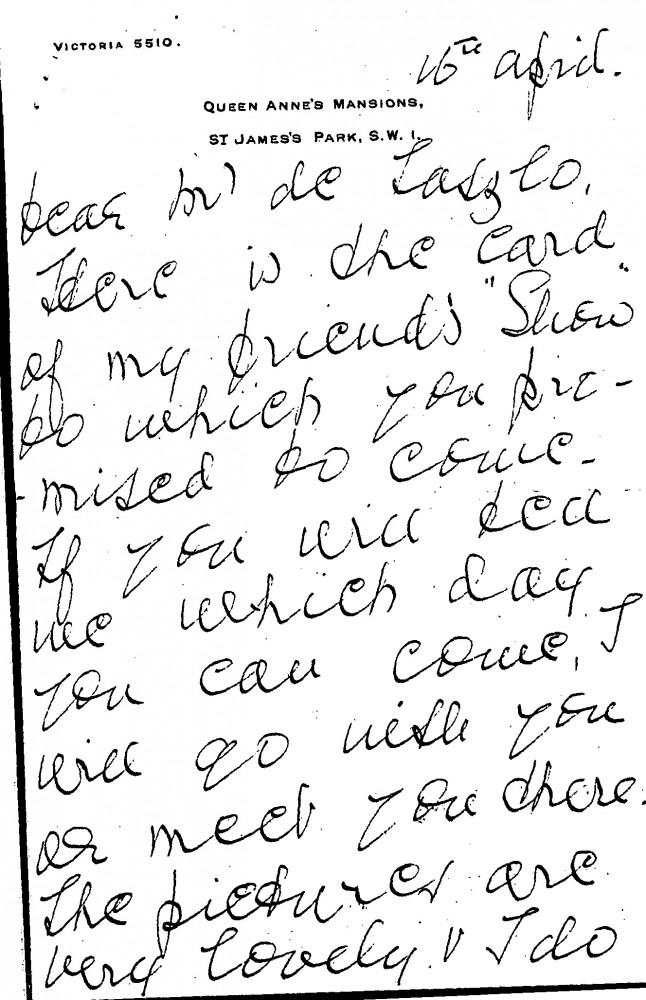 VICTORIA 5510.
16th April.
QUEEN ANNE'S MANSIONS,
ST JAMES'S PARK, S.W.1.
Dear Mr de Laszlo,
Here is the card
of my friend's "Show"
to which you pro-
-mised to come.
If you will tell
me which day
you can come, I
will go with you
or meet you there.
The pictures are
very lovely! I do